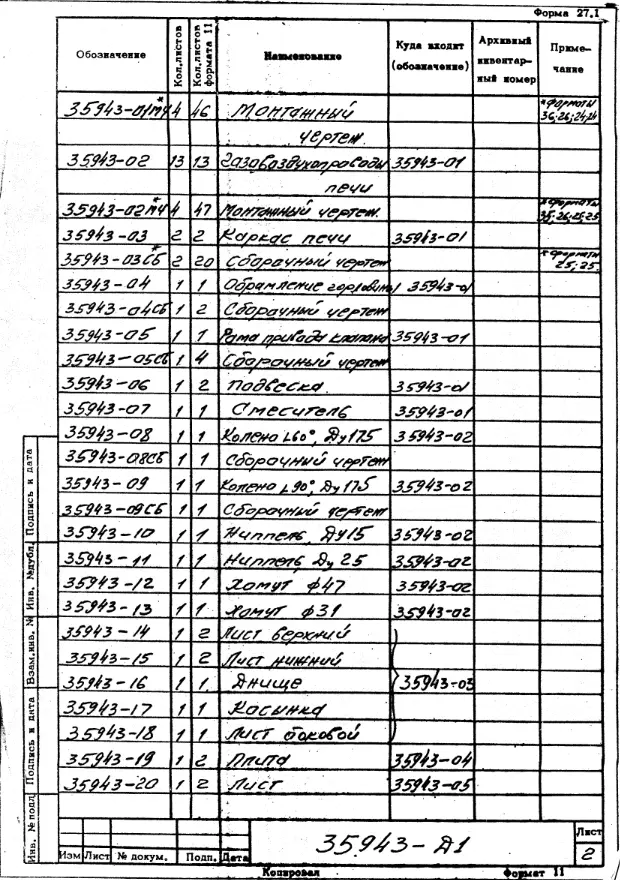 Форма 27.1
Обозначение Кол.листов Кол.листов формата 11 Наименование Куда входит (обозначение) Архивный инвентарный номер Примечание
35943-01МЧ* 4 46 Монтажный *форматы
чертеж. 36;26;24;24
35943-02 13 13 Газовоздухопроводы 35943-01
печи
35943-02МЧ* 4 47 Монтажный чертеж. *форматы 35;26;25;25
35943-03 2 2 Каркас печи 35943-01
35943-03СБ* 2 20 Сборочный чертеж *форматы 25;25.
35943-04 1 1 Обрамление горловины 35943-01
35943-04СБ 1 2 Сборочный чертеж
35943-05 1 1 Рама привода клапана 35943-01
35943-05СБ 1 4 Сборочный чертеж
35943-06 1 2 Подвеска. 35943-01
35943-07 1 1 Смеситель 35943-01
35943-08 1 1 Колено L60°, Ду175 35943-02
35943-08СБ 1 1 Сборочный чертеж
35943-09 1 1 Колено L90°, Ду175 35943-02
35943-09СБ 1 1 Сборочный чертеж
35943-10 1 1 Ниппель Ду15 35943-02
35943-11 1 1 Ниппель Ду 25 35943-02
35943-12 1 1 Хомут ф47 35943-02
35943-13 1 1 Хомут ф31 35943-02
35943-14 1 2 Лист верхний
35943-15 1 2 Лист нижний
35943-16 1 1. Днище 35943-03
35943-17 1 1 Косынка
35943-18 1 1 Лист боковой
35943-19 1 2 Плита 35943-04
35943-20 1 2 Лист 35943-05
Инв. № подл Подпись и дата Взам.инв. № Инв. №дубл. Подпись и дата
35943-Д1
Лист
2
Изм Лист № докум. Подп. Дата
Копировал Формат 11